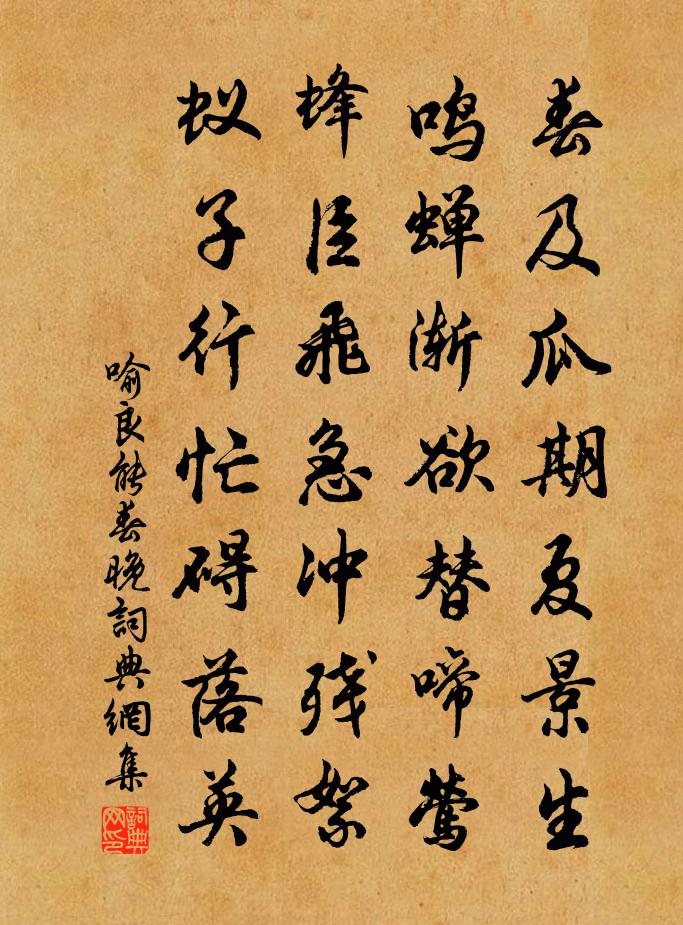 春及瓜期夏景生
鸣蝉渐欲替啼莺
蜂臣飛急冲残絮
蚁子行忙碍落英
喻良能春晚詞典網集
詞典网印